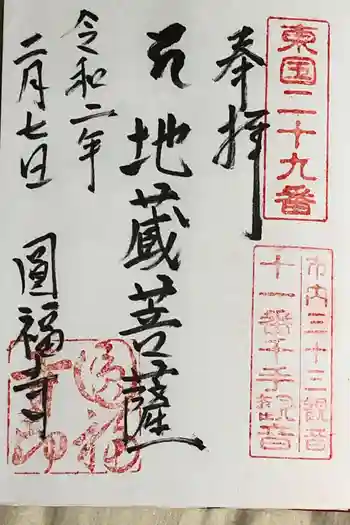 東国二十九番
市内三十三観音
十一番千手観音
奉拝
地蔵菩薩
令和二年
二月七日
圓福寺